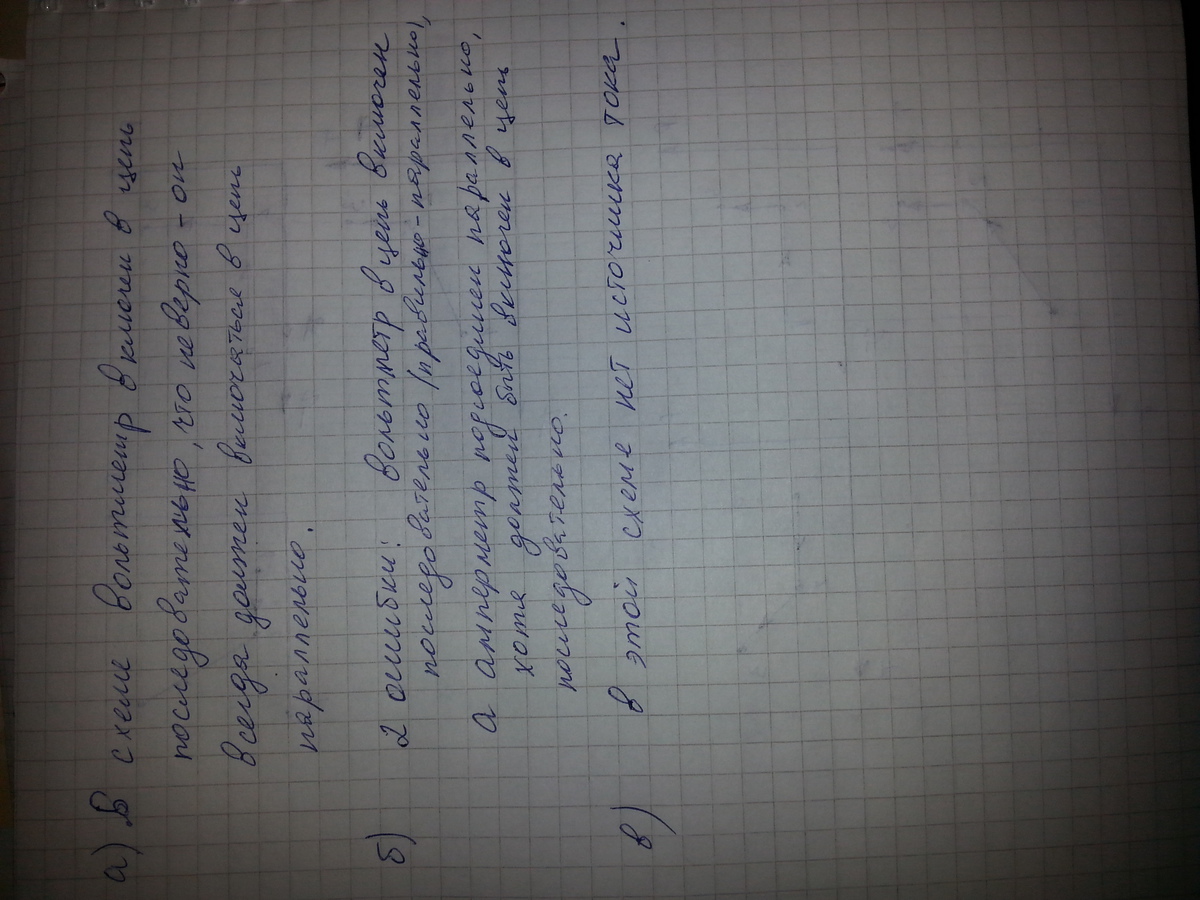 а) В схеме вольтметр включен в цепь
последовательно, что неверно - он
всегда должен включаться в цепь
параллельно.
б) 2 ошибки: вольтметр в цепь включен
последовательно (правильно - параллельно),
а амперметр подсоединен параллельно,
хотя должен быть включен в цепь
последовательно.
в) в этой схеме нет источника тока.